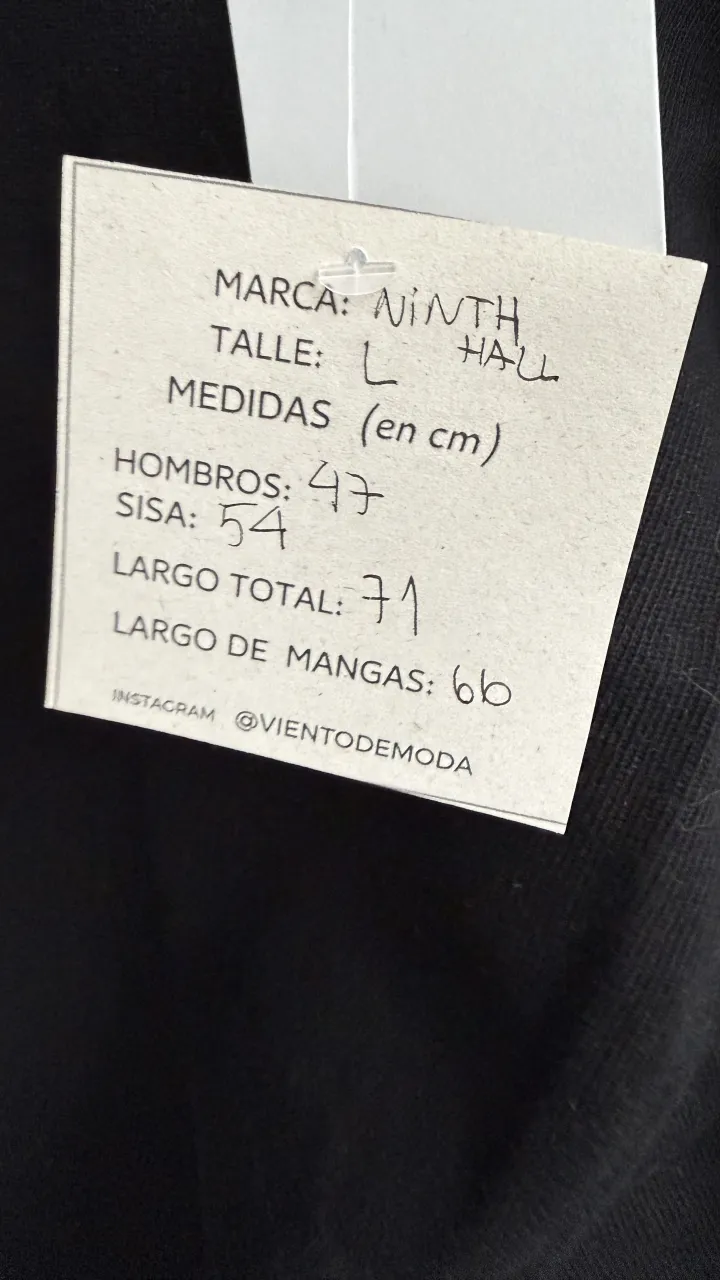 MARCA: NiNTH
HALL
TALLE: L
MEDIDAS (en cm)
HOMBROS: 47
SISA: 54
LARGO TOTAL: 71
LARGO DE MANGAS: 66
INSTAGRAM @VIENTODEMODA